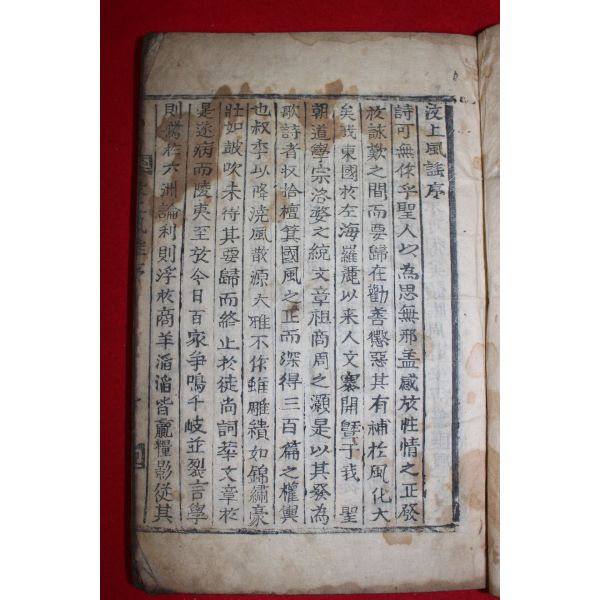 汶上風謠序
詩可無作乎聖人以為思無邪盖感於性情之正發
於詠歎之間而要歸在勸善懲惡其有補於風化大
矣我東國於左海羅麗以來人文寰開曁于我 聖
朝道學宗洛婺之統文章祖商周之灝是以其發為
歌詩者収拾檀箕國風之正而深得三百篇之權輿
也叔季以降澆風散源大雅不作雖雕繢如錦繡豪
壯如鼓吹未待其要歸而終止於徒尚詞華文章於
是遂病而陵夷至於今日百家爭鳴千岐並裂言學
則騖於六洲論利則浮於商羊滔滔皆贏糧影從其